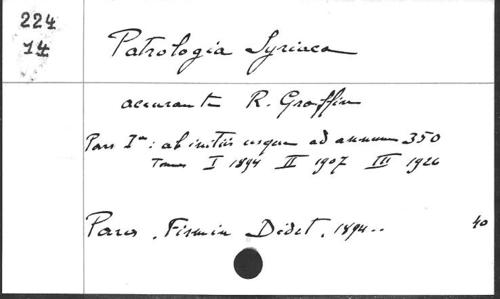 224
14
Patrologia Syriaca
accurante R. Graffin
Pars Iª: ab initiis usque ad annum 350
Tomus I 1894 II 1907 III 1926
Paris. Firmin Didot. 1894..
40